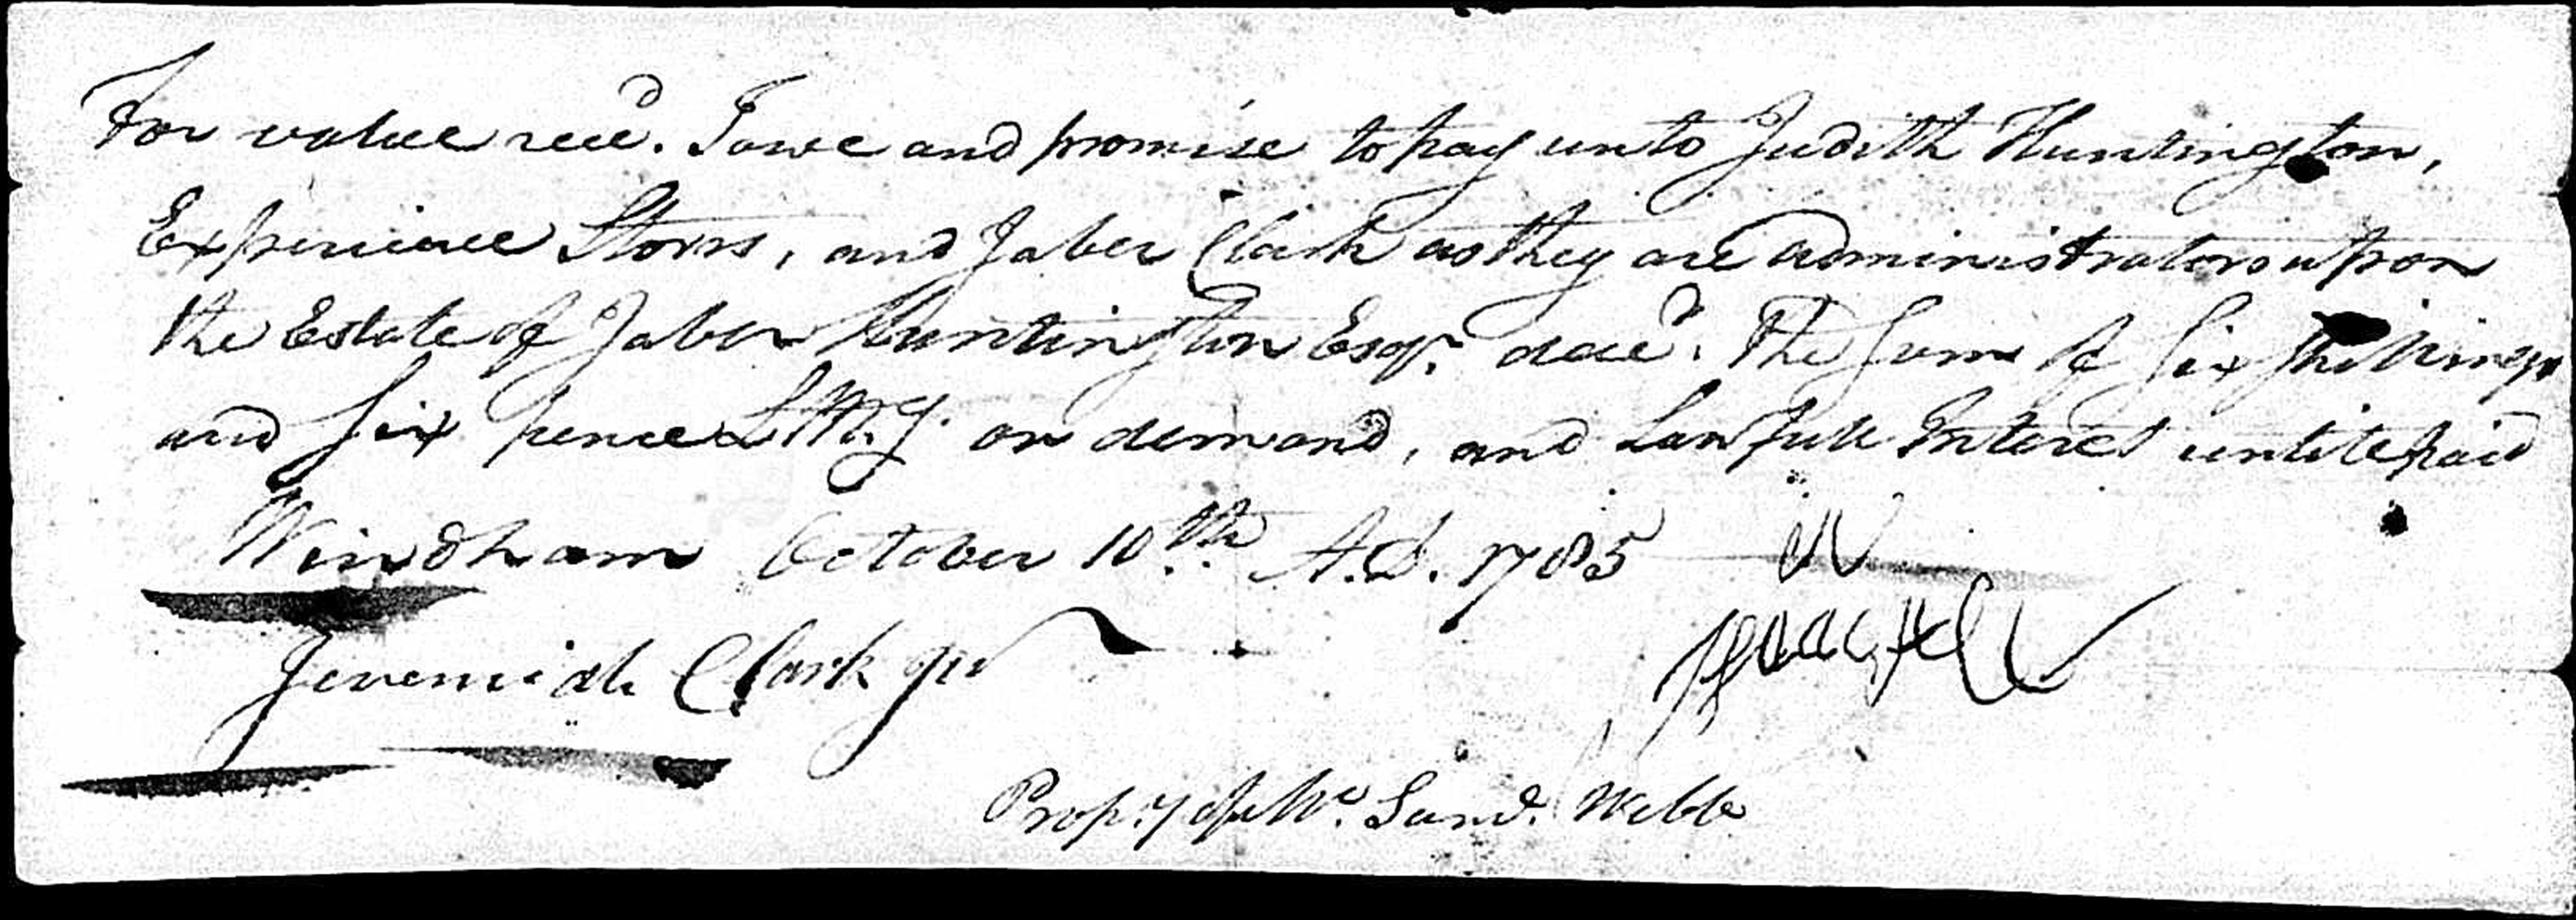 For value recd. I owe and promise to pay unto Judith Huntington,
Experience Storrs, and Jabez Clark as they are administrators upon
the Estate of Jabez Huntington Esqr. decd. The Sum of Six shillings
and six pence L My. on demand, and Lawfull Interest untill paid
Windham October 10th. A.D. 1785
Jeremiah Clark Jur
Propy. of Mr. Saml. Webb